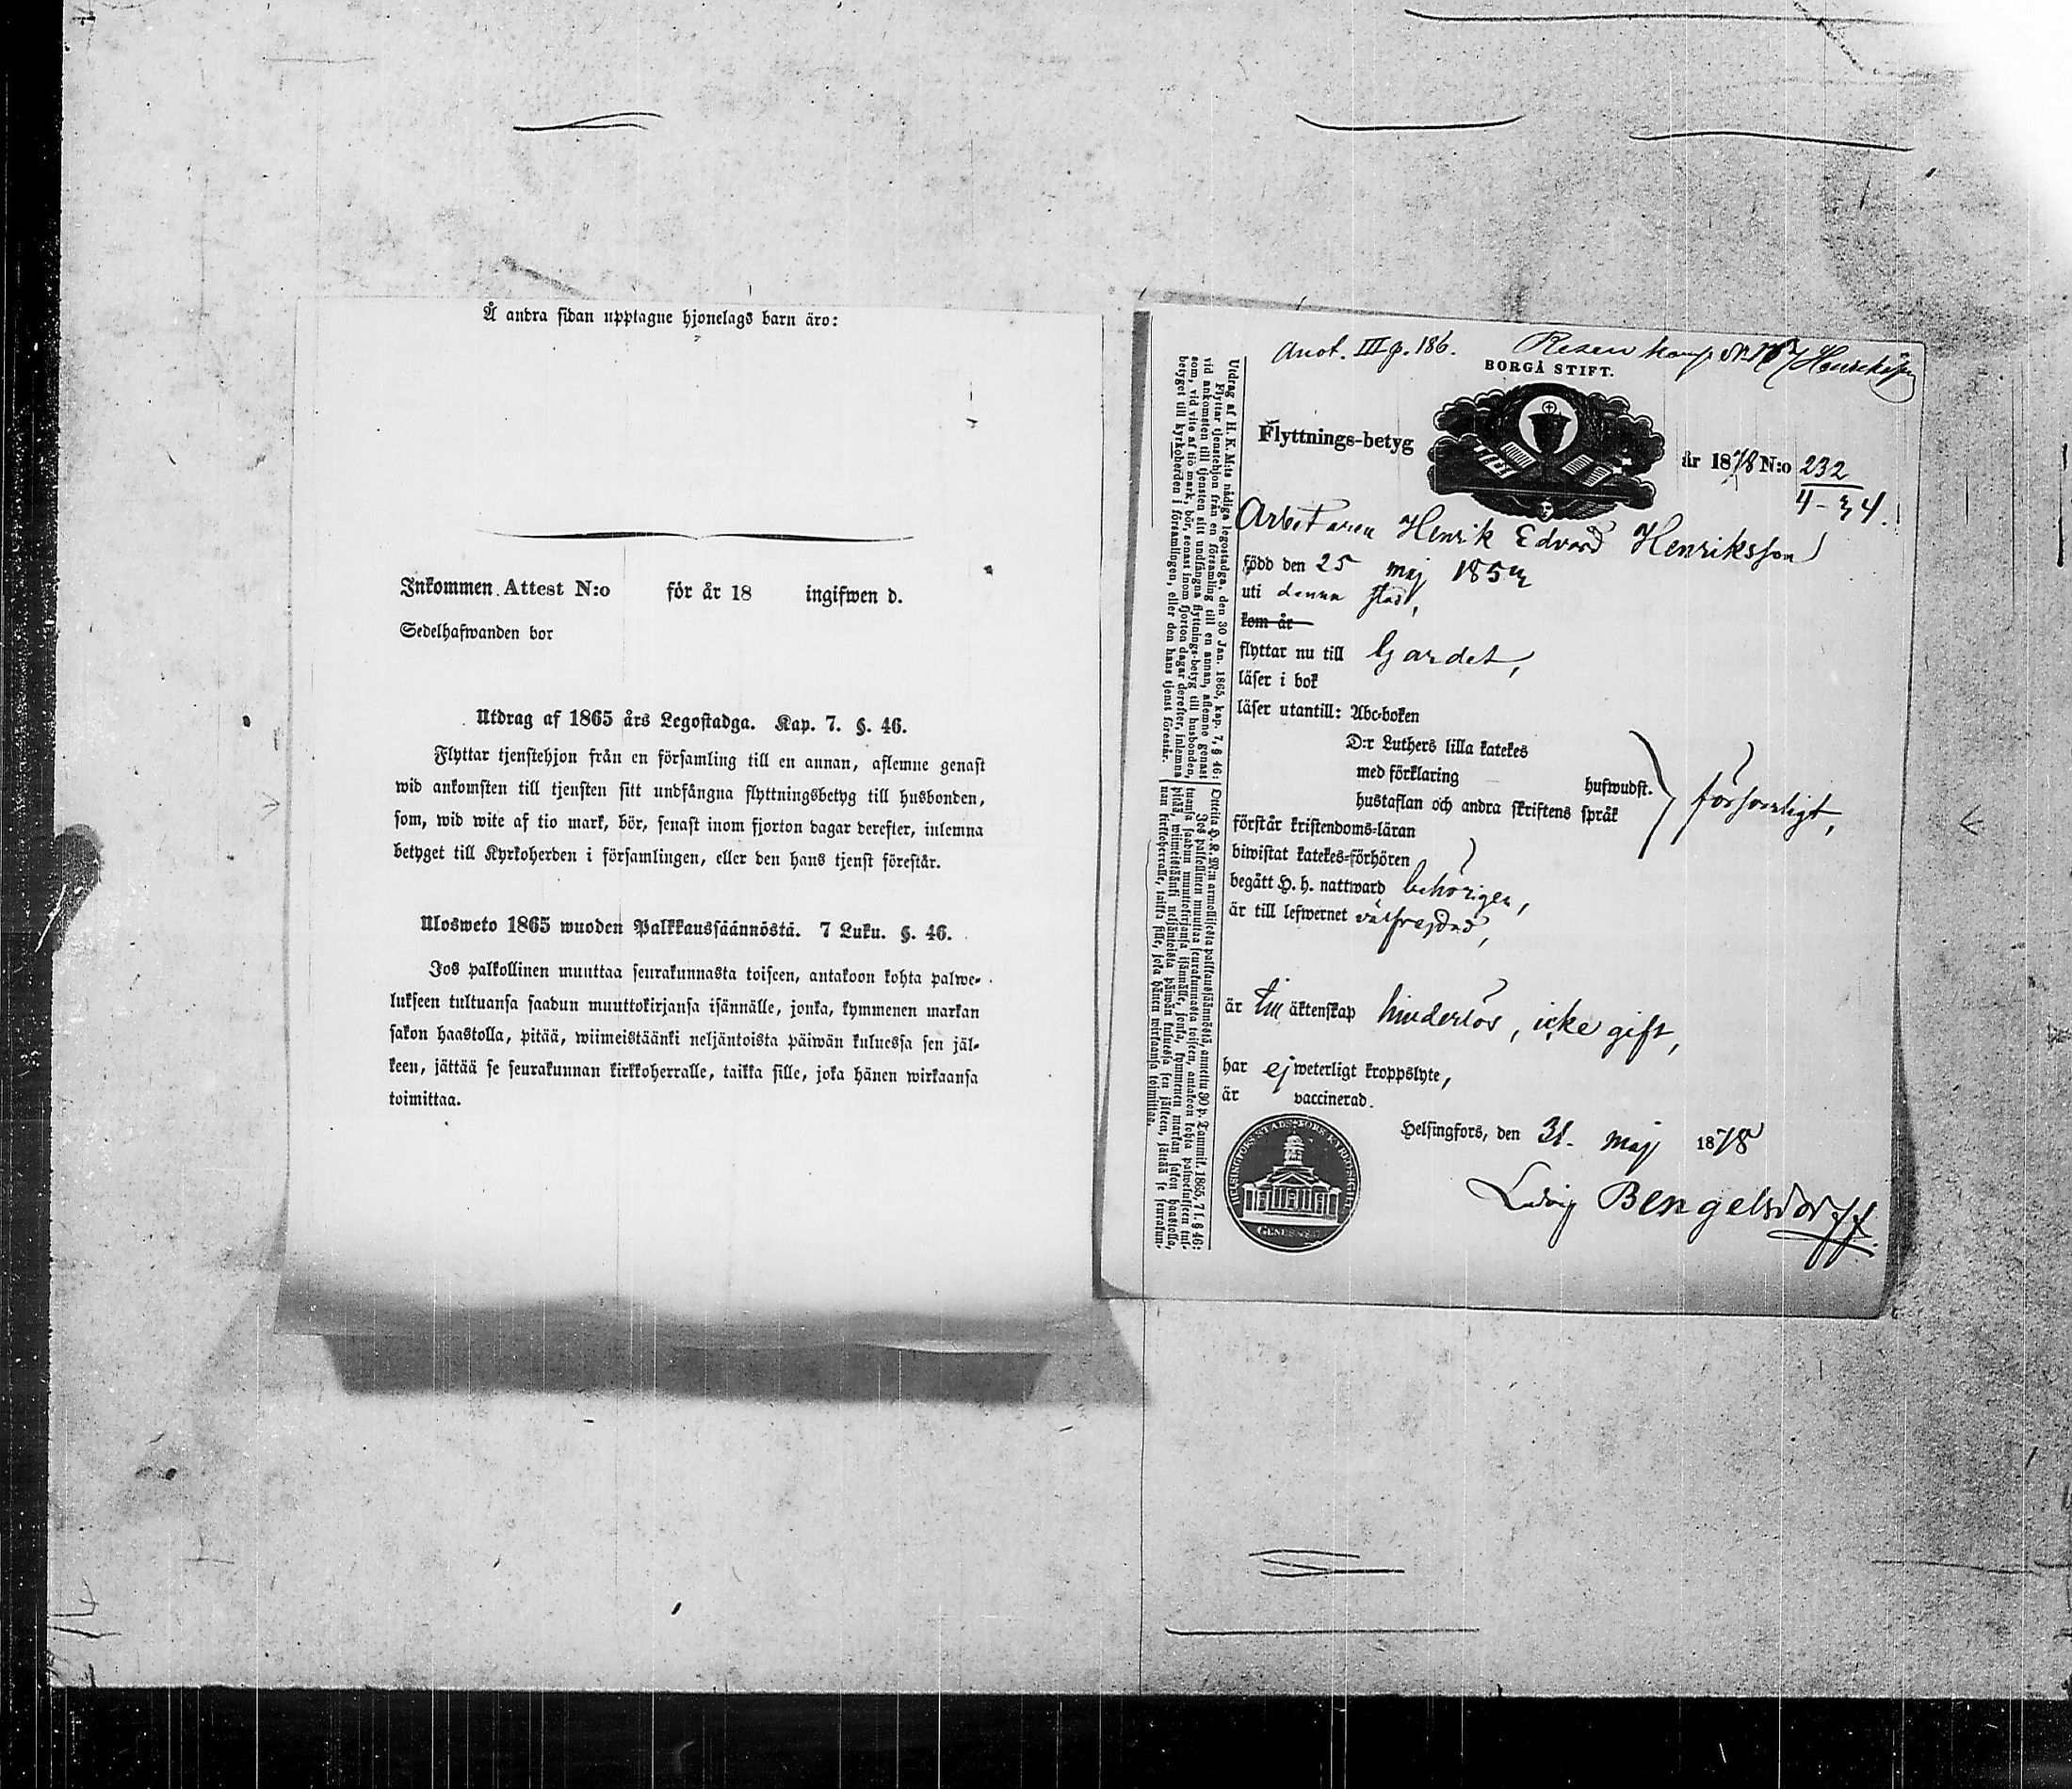 Å andra sidan upptagne hjonelags barn äro:
Inkommen Attest N:o för år 18 ingifwen d.
Sedelhafwanden bor
Utdrag af 1865 års Legostadga. Kap. 7. §. 46.
Flyttar tjenstehjon från en församling till en annan, aflemne genast
wid ankomsten till tjensten sitt undfångna flyttningsbetyg till husbonden,
som, wid wite af tio mark, bör, senast inom fjorton dagar derefter, inlemna
betyget till Kyrkoherden i församlingen, eller den hans tjenst förestår.
Ulosweto 1865 wuoden Palkkaussäännöstä. 7 Luku. §. 46.
Jos palkollinen muuttaa seurakunnasta toiseen, antakoon kohta palwe-
lukseen tultuansa saadun muuttokirjansa isännälle, jonka, kymmenen markan
sakon haastolla, pitää, wiimeistäänki neljäntoista päiwän kuluessa sen jäl-
keen, jättää se seurakunnan kirkkoherralle, taikka sille, joka hänen wirkaansa
toimittaa.
Utdrag af H. K. M:ts nådiga legostadga, den 30 Jan. 1865, kap. 7, § 46:
Flyttar tjenstehjon från en församling till en annan, aflemne genast
vid ankomsten till tjensten sitt undfångna flyttnings-betyg till husbonden,
som, vid vite af tio mark, bör, senast inom fjorton dagar derefter, inlemna
betyget till kyrkoherden i församlingen, eller den hans tjenst förestår.
Otteita H. K. M:n armollisesta palkkaussäännöstä, annettu 30 p. Tammik. 1865, 7 l. § 46:
Jos palkollinen muuttaa seurakunnasta toiseen, antakoon kohta palwelukseen tul-
tuansa saadun muuttokirjansa isännälle, jonka, kymmenen markan sakon haastolla,
pitää, wiimeistäänki neljäntoista päiwän kuluessa sen jälkeen, jättää se seurakun-
nan kirkkoherralle, taikka sille, joka hänen wirkaansa toimittaa.
Anot. III p. 186.
BORGÅ STIFT.
Flyttnings-betyg
år 1878 N:o 232
Arbetaren Henrik Edvard Henriksson
född den 25 maj 185
uti denna stad,
kom år
flyttar nu till Gardet,
läser i bok
läser utantill: Abc-boken
D:r Luthers lilla katekes
med förklaring hufwudst.
hustaflan och andra skriftens språk
försvarligt,
förstår kristendoms-läran
biwistat katekes-förhören
begått H. h. nattward behörigen,
är till lefwernet välfrejdad,
är till äktenskap hinderlös, icke gift,
har ej weterligt kroppslyte,
är vaccinerad.
Helsingfors, den 31. maj 1878
Ludvig Bengelsdorff.